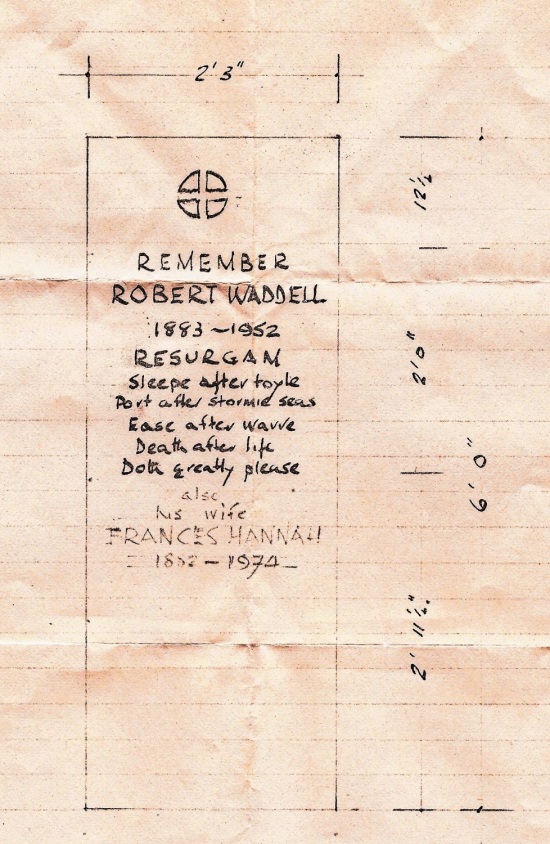 2' 3"
12½
REMEMBER
ROBERT WADDELL
1883 ~ 1952
RESURGAM
Sleepe after toyle
Port after stormie seas
Ease after warre
Death after life
Doth greatly please
also
his wife
FRANCES HANNAH
– 1974
2' 0"
6' 0"
2' 11½"